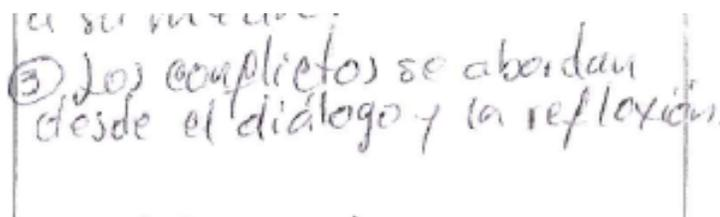 ③ Los conflictos se abordan
desde el diálogo y la reflexión.